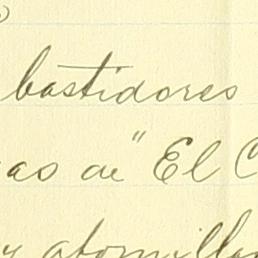 bastidores
as de "El C
y atornilla